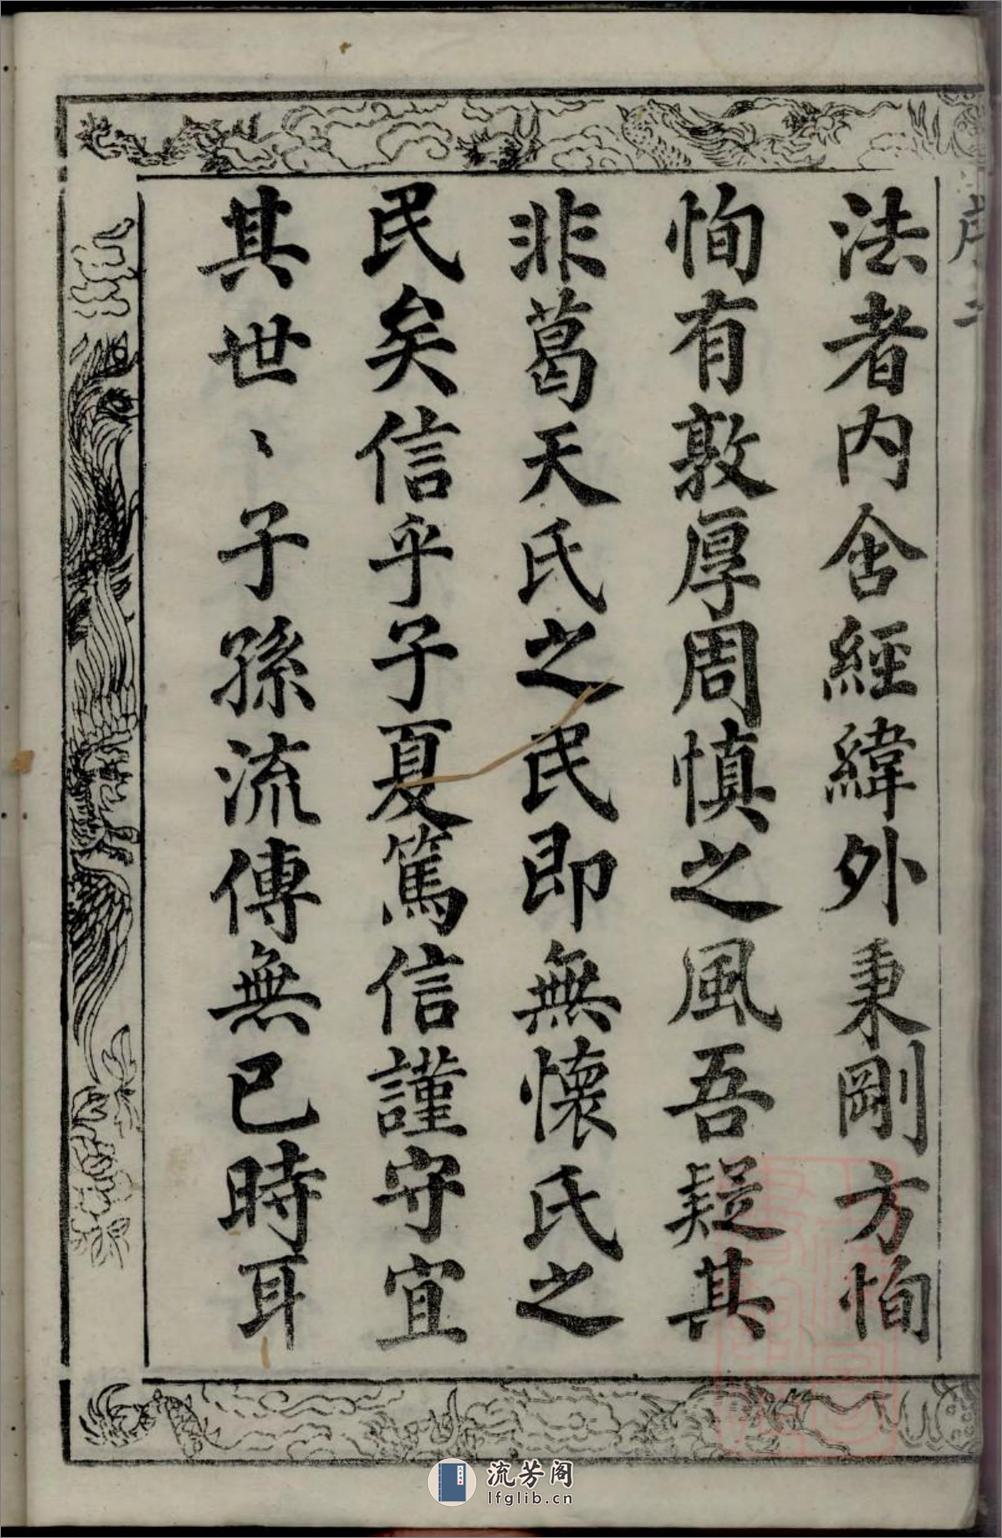 法者內含經緯外秉剛方恂
恂有敦厚周慎之風吾疑其
非葛天氏之民即無懷氏之
民矣信乎子夏篤信謹守宜
其世、子孫流傳無已時耳
序二
流芳阁
lfglib.cn